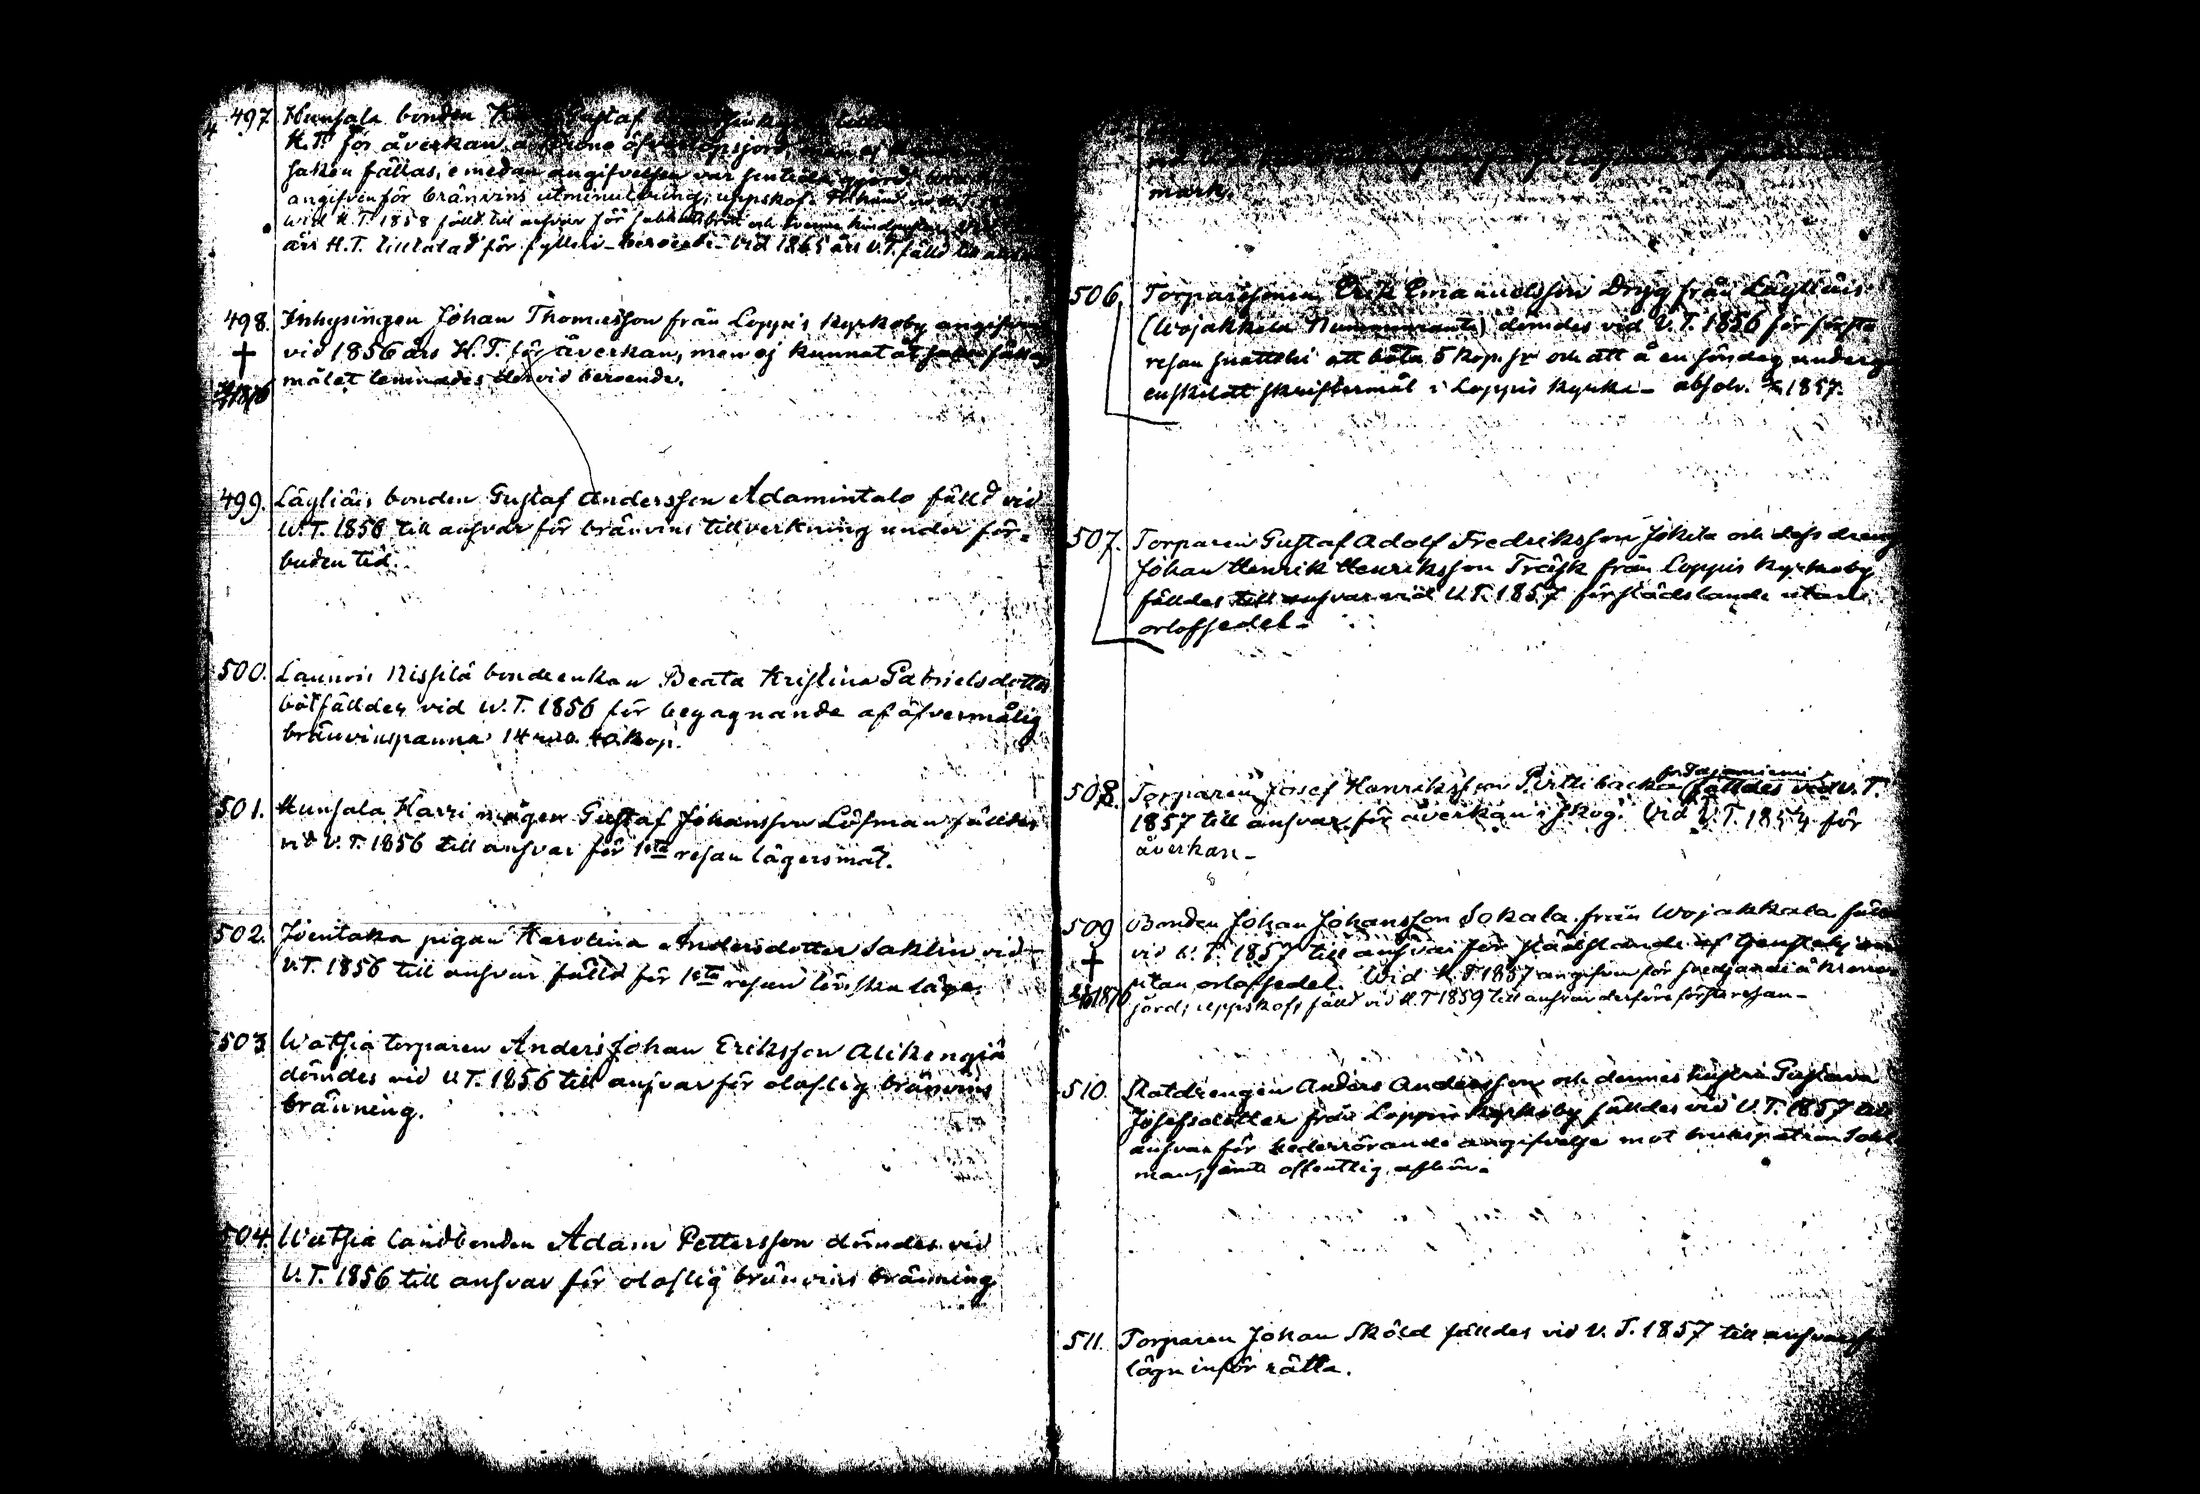 497. Hunsala bonden Gustaf
H.T. för åverkan å
saken fällas, emedan angifvelsen var
angifven för bränvins utminutering, uppskof.
wid H.T. 1858 fälld till ansvar för sabbatsbrott och
års H.T. tilltalad för fylleri - beroende - Vid 1865 års V.T. fälld till
498. Inhysingen Johan Thomasson från Loppis Kyrkoby angifven
vid 1856 års H.T. för åverkan, men ej kunnat åt saken fällas,
målet lemnades dervid beroende.
499. Läyliäis bonden Gustaf Andersson Adamintalo fälld vid
W.T. 1856 till ansvar för bränvins tillverkning under för-
buden tid.
500. Launois Nissilä bondeenkan Beata Kristina Gabrielsdotter
bötfälldes vid W.T. 1856 för begagnande af öfvermålig
bränvinspanna 14 40 kop.
501. Hunsala Harri mågen Gustaf Johansson Löfman fälldes
vid V.T. 1856 till ansvar för 1sta resan lägersmål.
502. Joentaka pigan Karolina Andersdotter Sahlin vid
V.T. 1856 till ansvar fälld för 1sta resan lönska läge.
503 Watsia torparen Anders Johan Eriksson Alikengiä
dömdes vid V.T. 1856 till ansvar för olaflig bränvins
bränning.
504. Watsia landbonden Adam Pettersson dömdes vid
V.T. 1856 till ansvar för olaflig bränvins bränning
mark.
506. Torparesonen Erik Emanuelsson Dryg från Läyliäis
(Wojakkala Nummenranta) dömdes vid V.T. 1856 för första
resan snatteri att böta 5 kop. Sr och att å en söndag undergå
enskildt skriftermål i Loppis Kyrka - absolv. 1857.
507. Torparen Gustaf Adolf Fredriksson Jokela och dess dreng
Johan Henrik Henriksson Träsk från Loppis Kyrkoby
fälldes till ansvar vid V.T. 1857 för städslande utan
orlofsedel -
508. Torparen Josef Henriksson Pirttibacka fälldes vid V.T.
1857 till ansvar för åverkan i skog. Vid V.T. 1854 för
åverkan -
509 Bonden Johan Johansson Sokala från Wojakkala
vid V.T. 1857 till ansvar för städslande af tjenstehjon
utan orlofsedel. Wid H.T 1857 angifven för svedjande å Krono
jord; uppskof, fälld vid H.T 1859 till ansvar derföre första resan -
510. Statdrengen Anders Andersson och dennes hustru Gustava
Josefsdotter från Loppis Kyrkoby fälldes vid V.T. 1857 till
ansvar för hederrörande angifvelse mot brukspatron
man, jemte offentlig afbön.
511. Torparen Johan Sköld fälldes vid V.T. 1857 till ansvar för
lögn inför rätta.